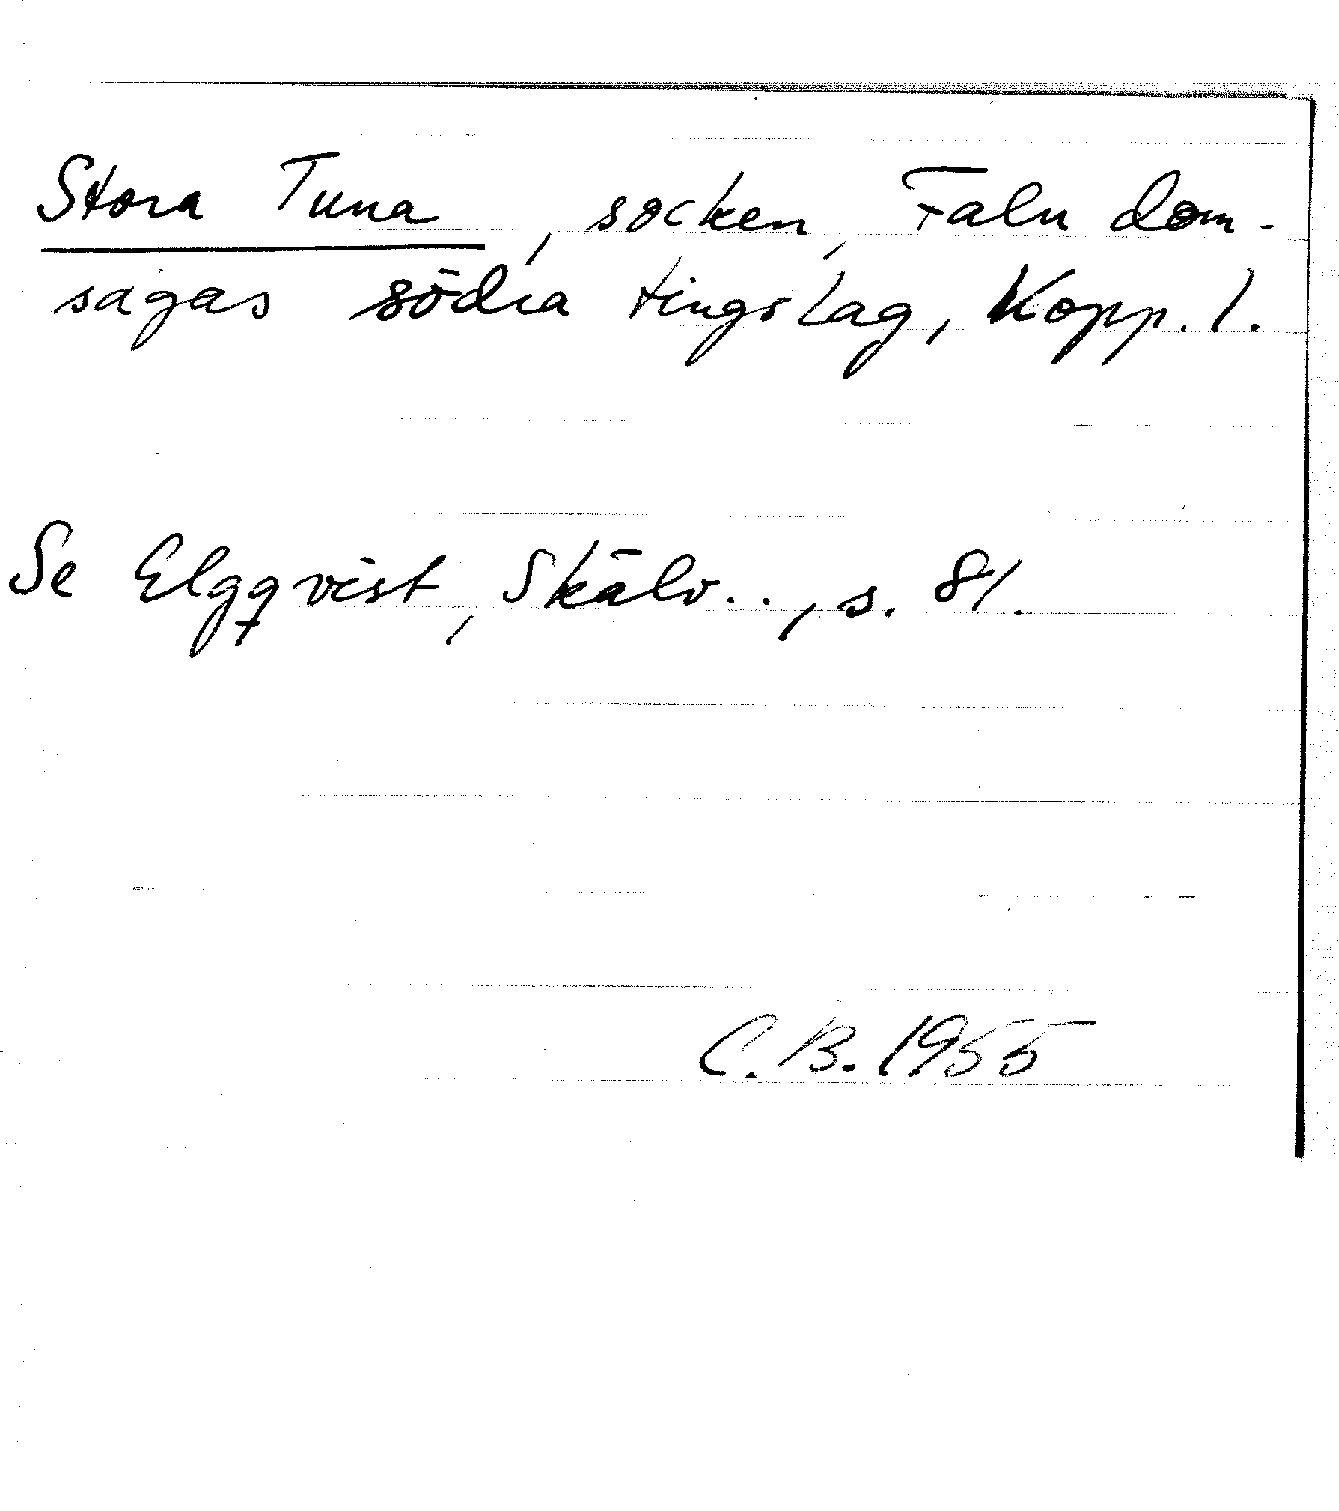 Stora Tuna, socken, Falu dom-
sagas södra tingslag, Kopp. l.
Se Elgqvist, Skälv.., s. 81.
C. B. 1955